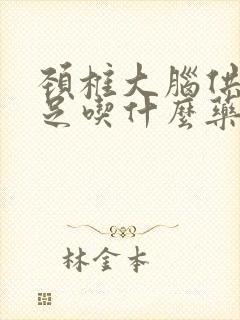 頸椎大腦供
足喫什麼藥
林金本